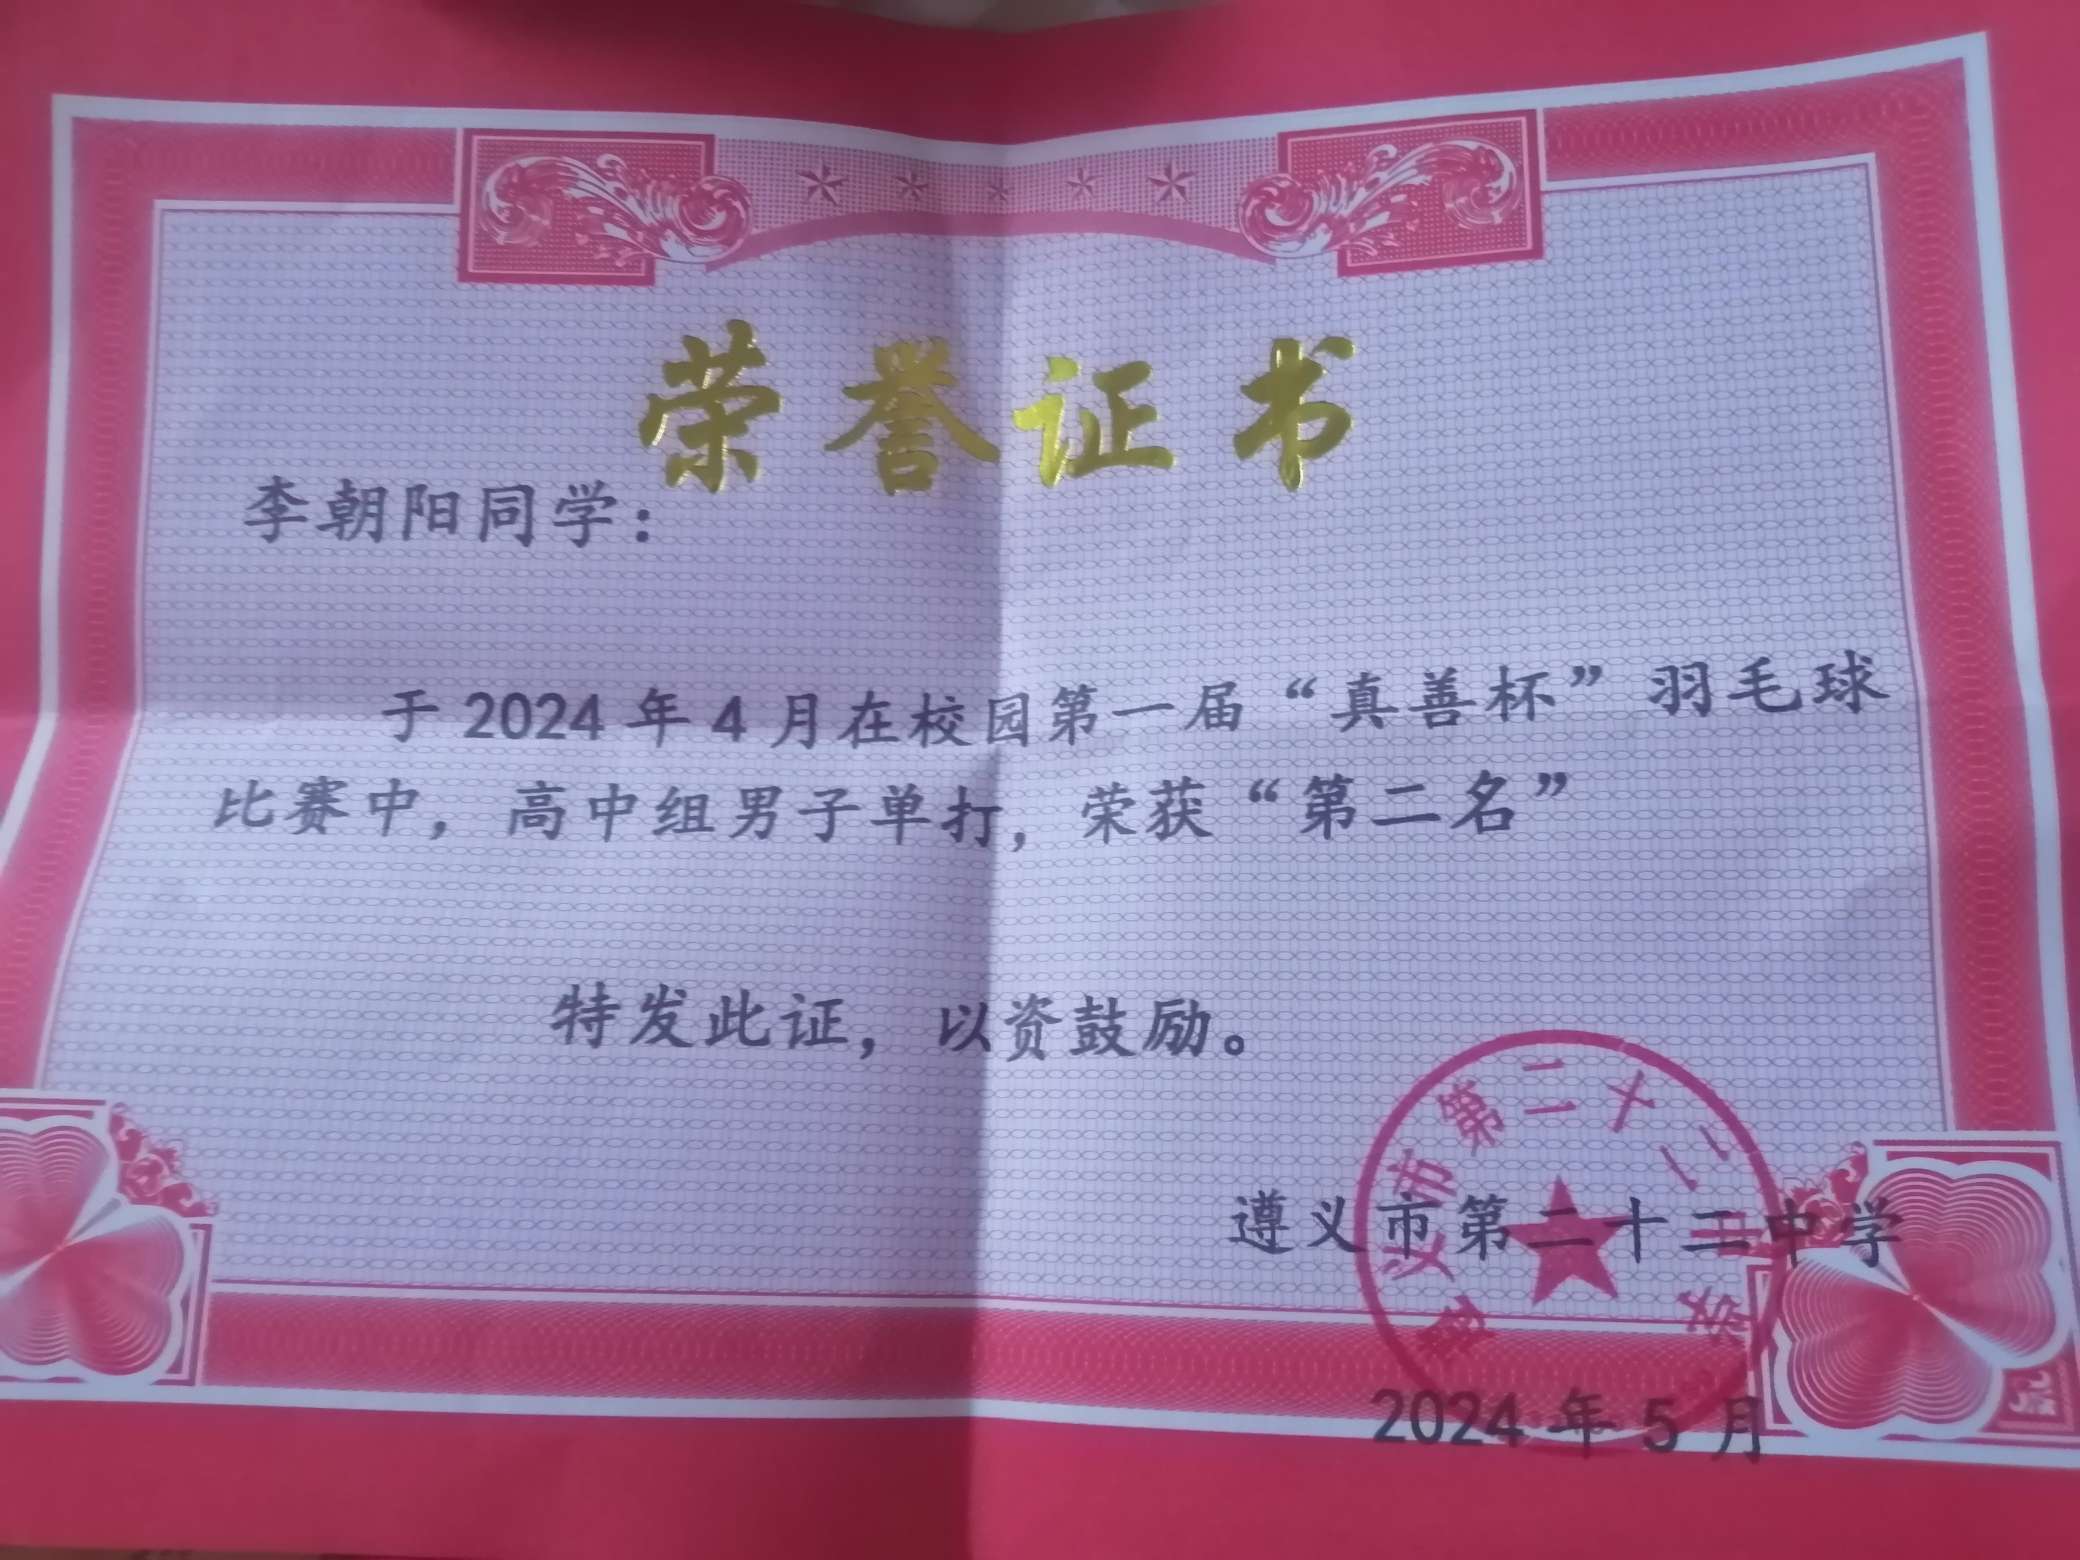 荣誉证书
李朝阳同学：
于 2024 年 4 月在校园第一届“真善杯”羽毛球
比赛中，高中组男子单打，荣获“第二名”
特发此证，以资鼓励。
遵义市第二十二中学
遵义市第二十二中学
2024 年 5 月